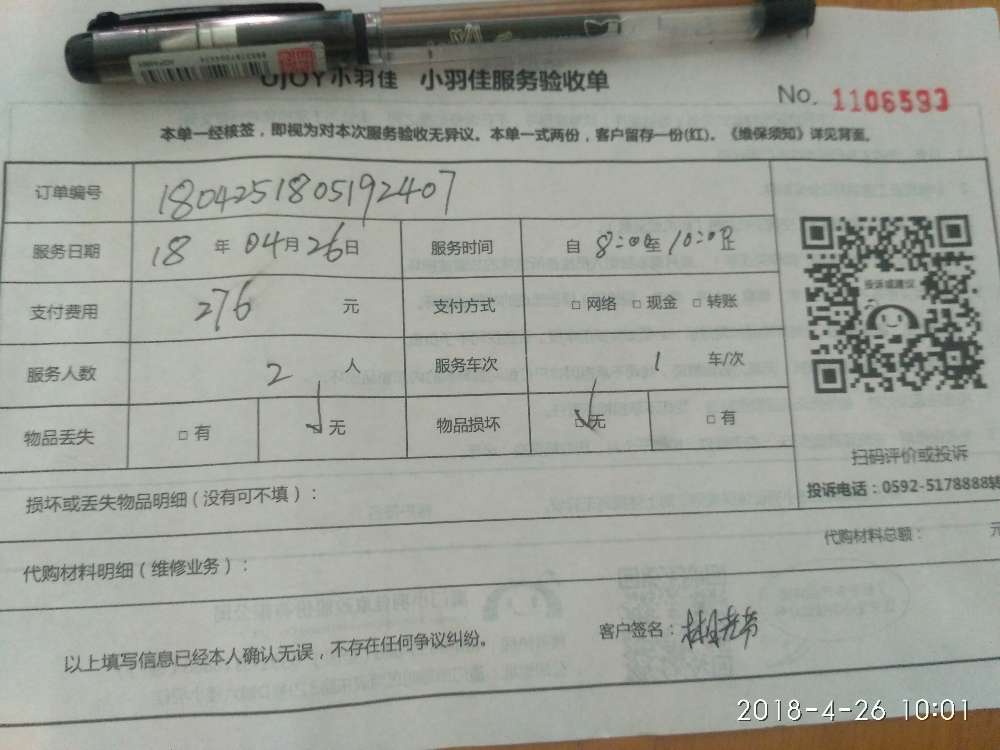 UJOY小羽佳 小羽佳服务验收单
No. 1106593
本单一经核签，即视为对本次服务验收无异议。本单一式两份，客户留存一份(红)。《维保须知》详见背面。
订单编号 1804251805192407
服务日期 18 年 04月 26日 服务时间 自 8:00至 10:00止
支付费用 276 元 支付方式 □ 网络 □ 现金 □ 转账
服务人数 2 人 服务车次 1 车/次
物品丢失 □ 有 □ 无 物品损坏 □ 无 □ 有
投诉或建议
扫码评价或投诉
投诉电话：0592-5178888转
损坏或丢失物品明细（没有可不填）：
代购材料明细（维修业务）：
代购材料总额： 元
以上填写信息已经本人确认无误，不存在任何争议纠纷。
客户签名：
2018-4-26 10:01